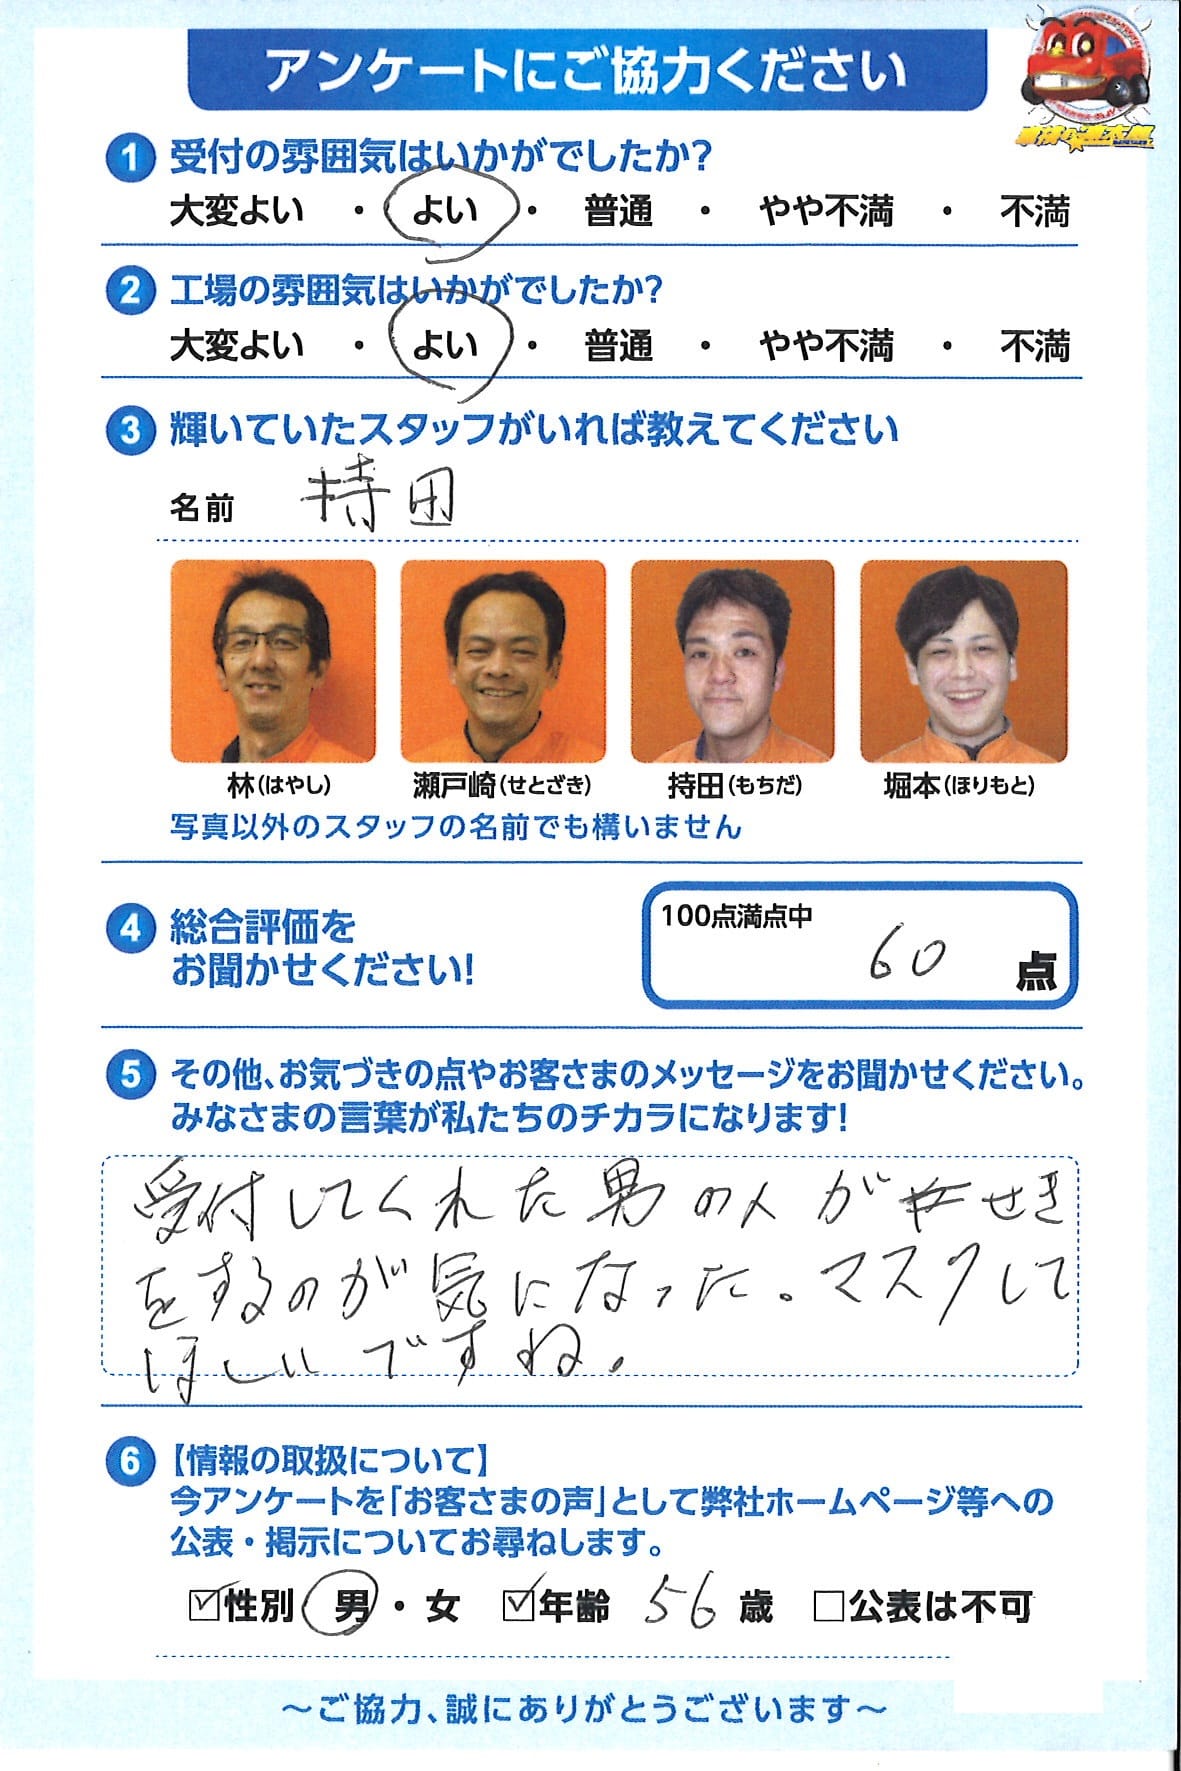 アンケートにご協力ください
1 受付の雰囲気はいかがでしたか?
大変よい ・ よい ・ 普通 ・ やや不満 ・ 不満
2 工場の雰囲気はいかがでしたか?
大変よい ・ よい ・ 普通 ・ やや不満 ・ 不満
3 輝いていたスタッフがいれば教えてください
名前 持田
林(はやし) 瀬戸崎(せとざき) 持田(もちだ) 堀本(ほりもと)
写真以外のスタッフの名前でも構いません
4 総合評価を
お聞かせください!
100点満点中
60 点
5 その他、お気づきの点やお客さまのメッセージをお聞かせください。
みなさまの言葉が私たちのチカラになります!
受付してくれた男の人がせき
をするのが気になった。マスクして
ほしいですね。
6 【情報の取扱について】
今アンケートを「お客さまの声」として弊社ホームページ等への
公表・掲示についてお尋ねします。
☑性別 男・女 ☑年齢 56 歳 □公表は不可
～ご協力、誠にありがとうございます～